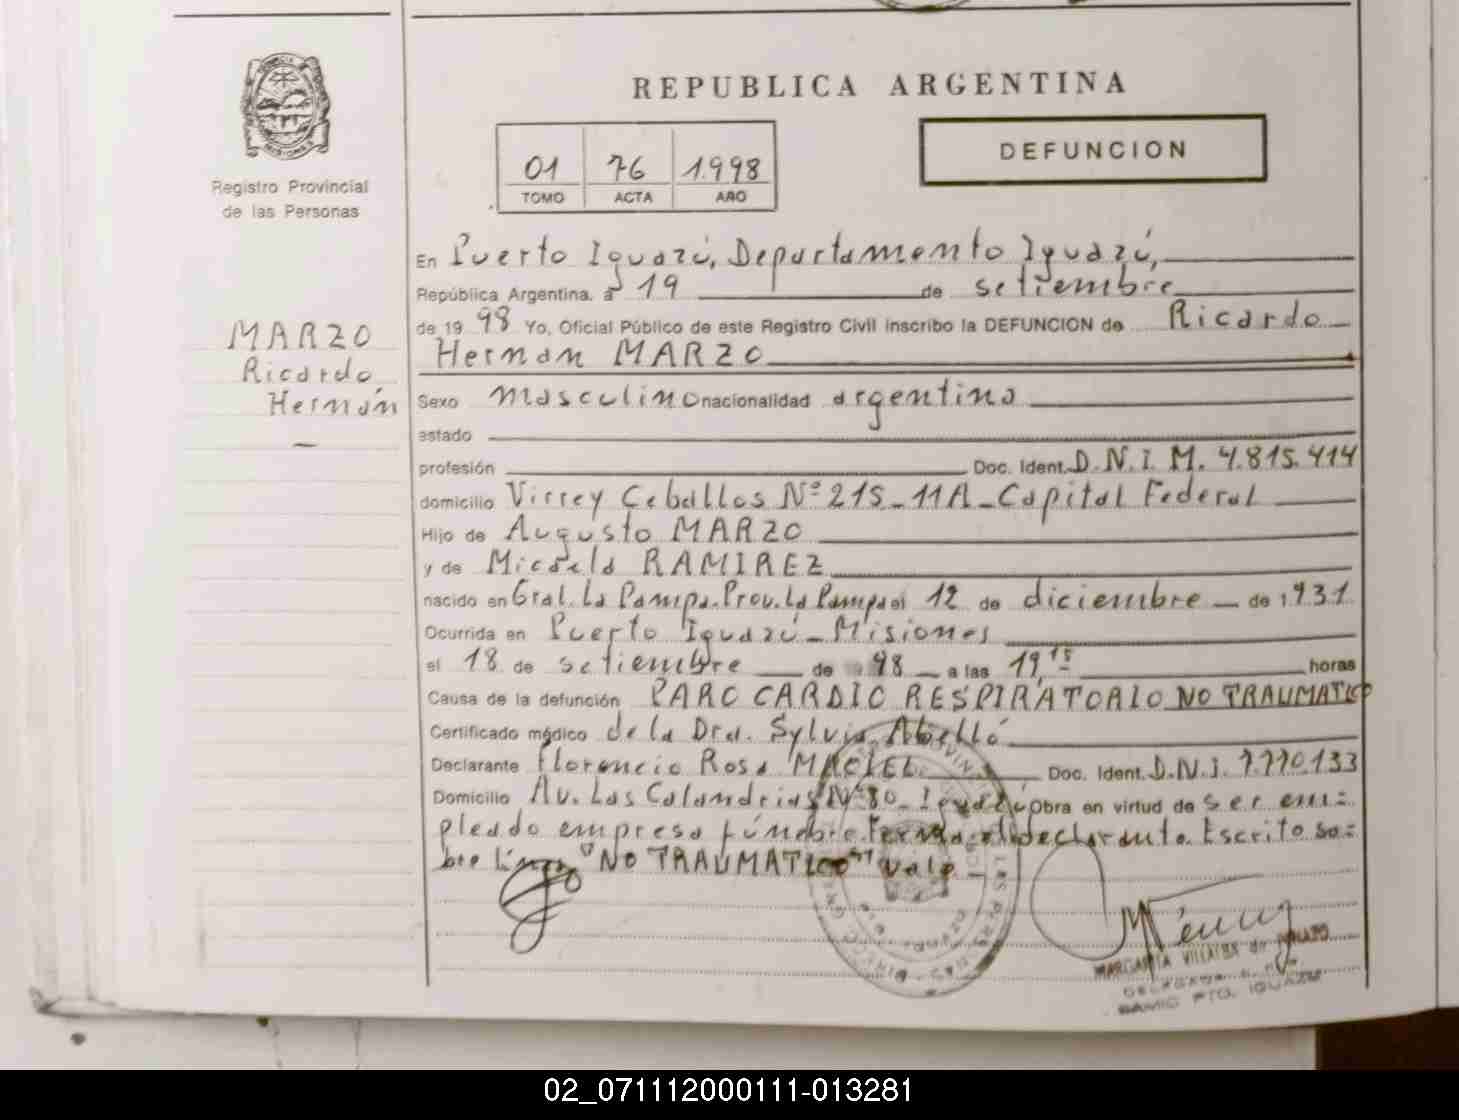 REPUBLICA ARGENTINA
DEFUNCION
01 76 1.998
TOMO ACTA AÑO
MISIONES
Registro Provincial
de las Personas
MARZO
Ricardo
Hernán
En Puerto Iguazú, Departamento Iguazú,
República Argentina, a 19 de setiembre
de 19 98 Yo, Oficial Público de este Registro Civil inscribo la DEFUNCION de Ricardo
Hernán MARZO
Sexo masculino nacionalidad argentina
estado
profesión Doc. Ident. D.N.I. M. 4.815.414
domicilio Virrey Ceballos Nº 215_11A_Capital Federal
Hijo de Augusto MARZO
y de Micaela RAMIREZ
nacido en Gral. La Pampa. Prov. La Pampa el 12 de diciembre de 1931
Ocurrida en Puerto Iguazú_Misiones
el 18 de setiembre de 98 a las 19 15 horas
Causa de la defunción PARO CARDIO RESPIRATORIO NO TRAUMATICO
Certificado médico de la Dra. Sylvia Abelló
Declarante Florencio Rosa MACIEL Doc. Ident. D.N.I. 7.770.133
Domicilio Av. Las Calandrias Nº 80_Iguazú Obra en virtud de ser em=
pleado empresa fúnebre. Firma el declarante. Escrito so=
bre línea "NO TRAUMATICO" Vale
MARGARITA VILLALBA de
DELEGADA
PTO. IGUAZU
02_071112000111-013281